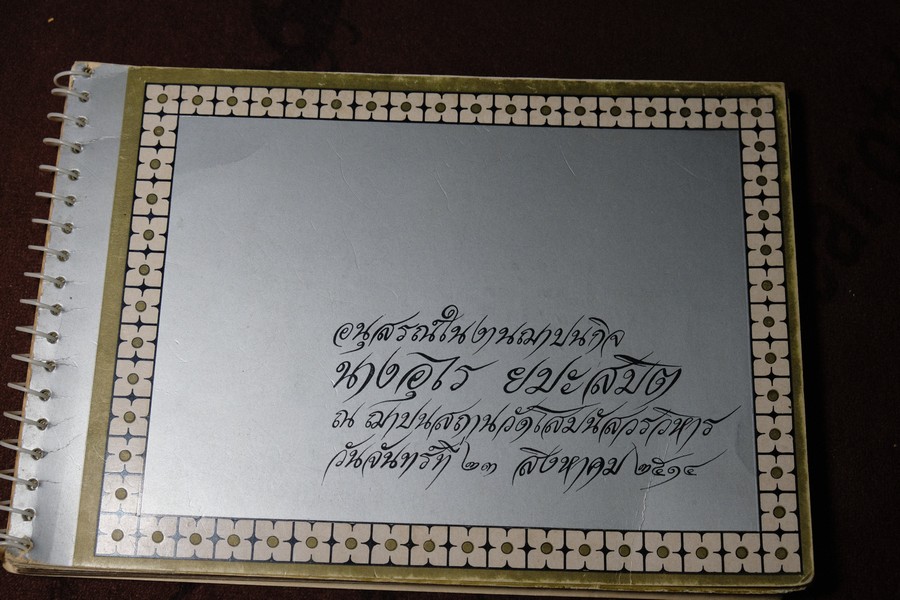 อนุสรณ์ในงานฌาปนกิจ
นางอุไร ยมะสมิต
ณ ฌาปนสถานวัดโสมนัสวรวิหาร
วันจันทร์ที่ ๒๓ สิงหาคม ๒๕๑๔